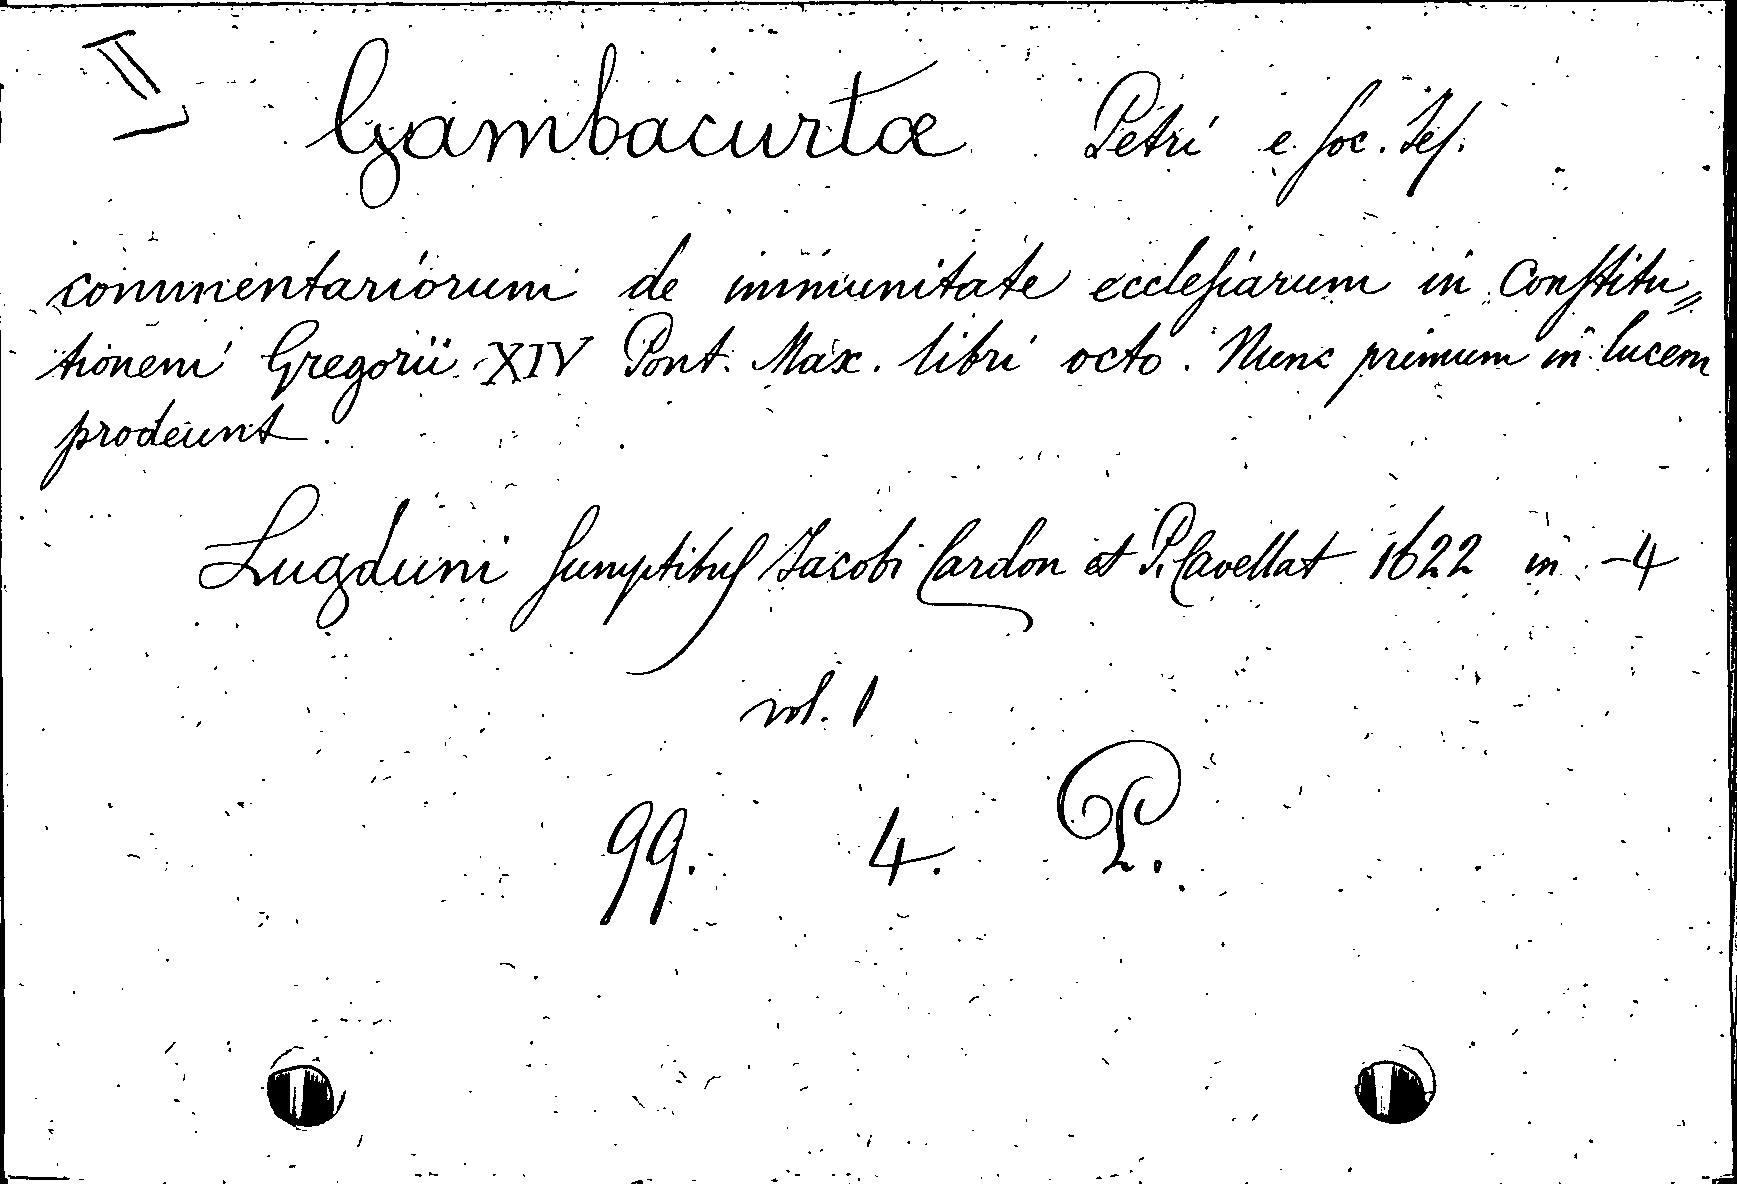 II
Gambacurtæ Petri e Soc. Jes.
commentariorum de immunitate ecclesiarum in Constitu„
tionem Gregorii XIV Pont. Max. libri octo. Nunc primum in lucem
prodeunt.
Lugduni Sumptibus Jacobi Cardon et P. Cavellat 1622 in -4
vol. 1
99. 4. P.